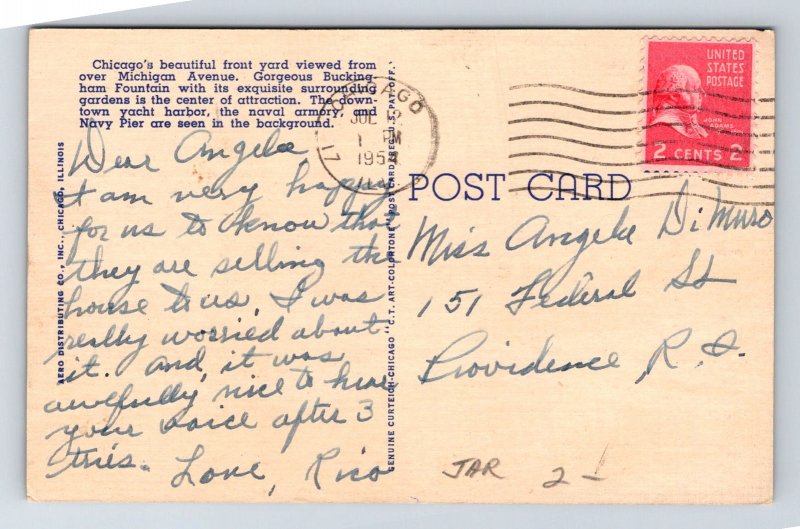 Chicago's beautiful front yard viewed from
over Michigan Avenue. Gorgeous Bucking-
ham Fountain with its exquisite surrounding
gardens is the center of attraction. The down-
town yacht harbor, the naval armory, and
Navy Pier are seen in the background.
AERO DISTRIBUTING CO., INC., CHICAGO, ILLINOIS
Dear Angela,
I am very happy
for us to know that
they are selling the
house to us, I was
really worried about
it. and, it was
awefully nice to hear
your voice after 3
tries. Love, Rico
GENUINE CURTEICH-CHICAGO "C.T. ART-COLORTONE" POST CARD (REG. U.S. PAT. OFF.)
CHICAGO
17
JUL 2
1 PM
1954
ILL.
UNITED
STATES
POSTAGE
JOHN
ADAMS
2 CENTS 2
POST CARD
Miss Angela Di Muro
151 Federal St
Providence, R.I.
JAR 2-